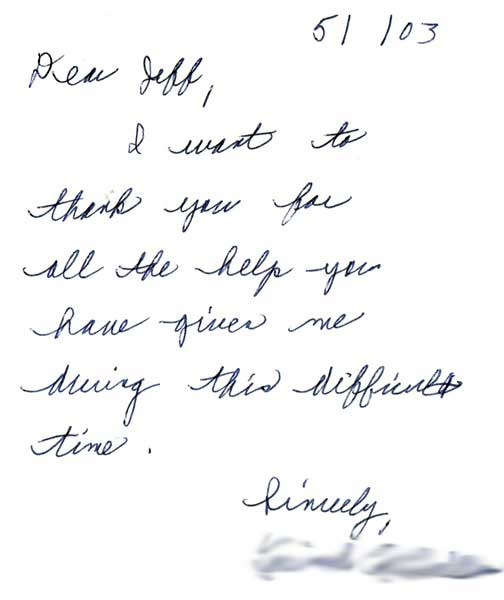 5/ /03
Dear Jeff,
I want to
thank you for
all the help you
have given me
during this difficult
time.
Sincerely,